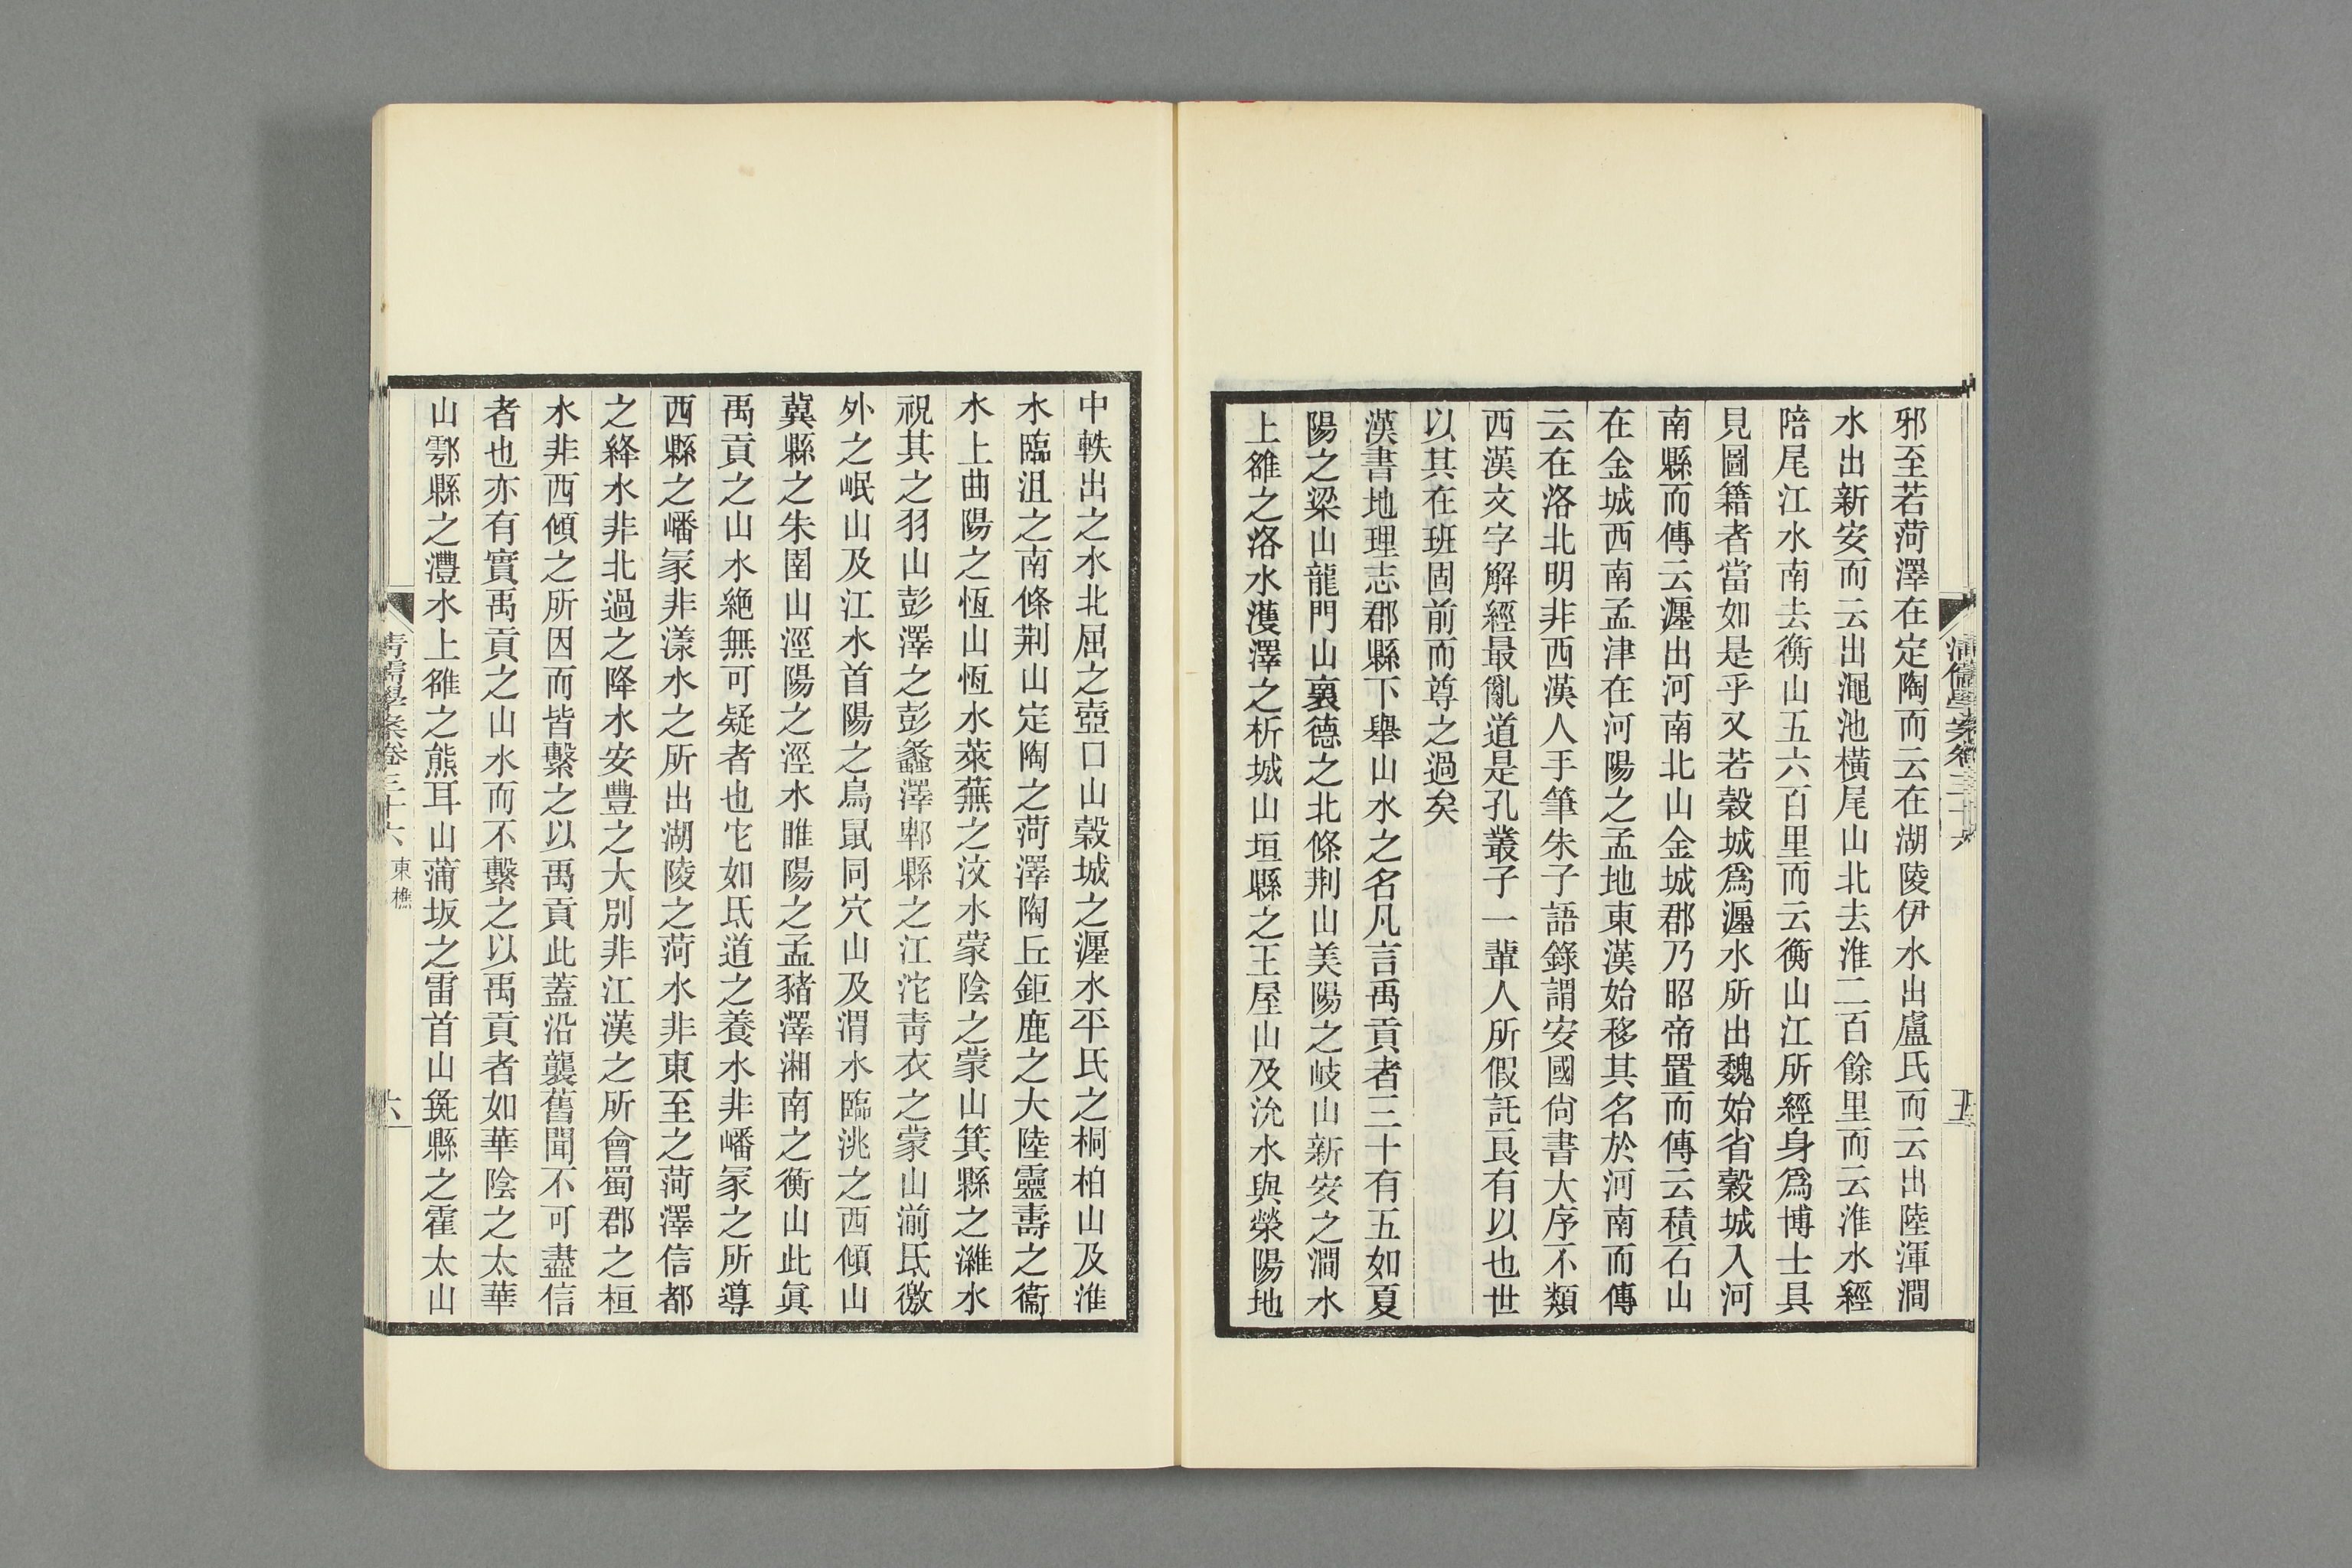 邪至若菏澤在定陶而云在湖陵伊水出盧氏而云出陸渾澗
水出新安而云出澠池橫尾山北去淮二百餘里而云淮水經
陪尾江水南去衡山五六百里而云衡山江所經身爲博士具
見圖籍者當如是乎又若穀城爲瀍水所出魏始省穀城入河
南縣而傳云瀍出河南北山金城郡乃昭帝置而傳云積石山
在金城西南孟津在河陽之孟地東漢始移其名於河南而傳
云在洛北明非西漢人手筆朱子語錄謂安國尙書大序不類
西漢文字解經最亂道是孔叢子一輩人所假託良有以也世
以其在班固前而尊之過矣
漢書地理志郡縣下舉山水之名凡言禹貢者三十有五如夏
陽之梁山龍門山褱德之北條荆山美陽之岐山新安之澗水
上雒之洛水濩澤之析城山垣縣之王屋山及沇水與滎陽地
清儒學案卷三十六
五
中軼出之水北屈之壺口山穀城之瀍水平氏之桐柏山及淮
水臨沮之南條荆山定陶之菏澤陶丘鉅鹿之大陸靈壽之衞
水上曲陽之恆山恆水萊蕪之汶水蒙陰之蒙山箕縣之濰水
祝其之羽山彭澤之彭蠡澤郫縣之江沱靑衣之蒙山湔氐徼
外之岷山及江水首陽之鳥鼠同穴山及渭水臨洮之西傾山
冀縣之朱圉山涇陽之涇水睢陽之孟豬澤湘南之衡山此眞
禹貢之山水絶無可疑者也它如氐道之養水非嶓冢之所導
西縣之嶓冢非漾水之所出湖陵之菏水非東至之菏澤信都
之絳水非北過之降水安豐之大別非江漢之所會蜀郡之桓
水非西傾之所因而皆繫之以禹貢此蓋沿襲舊聞不可盡信
者也亦有實禹貢之山水而不繫之以禹貢者如華陰之太華
山鄠縣之灃水上雒之熊耳山蒲坂之雷首山彘縣之霍太山
清儒學案卷三十六 東樵
六